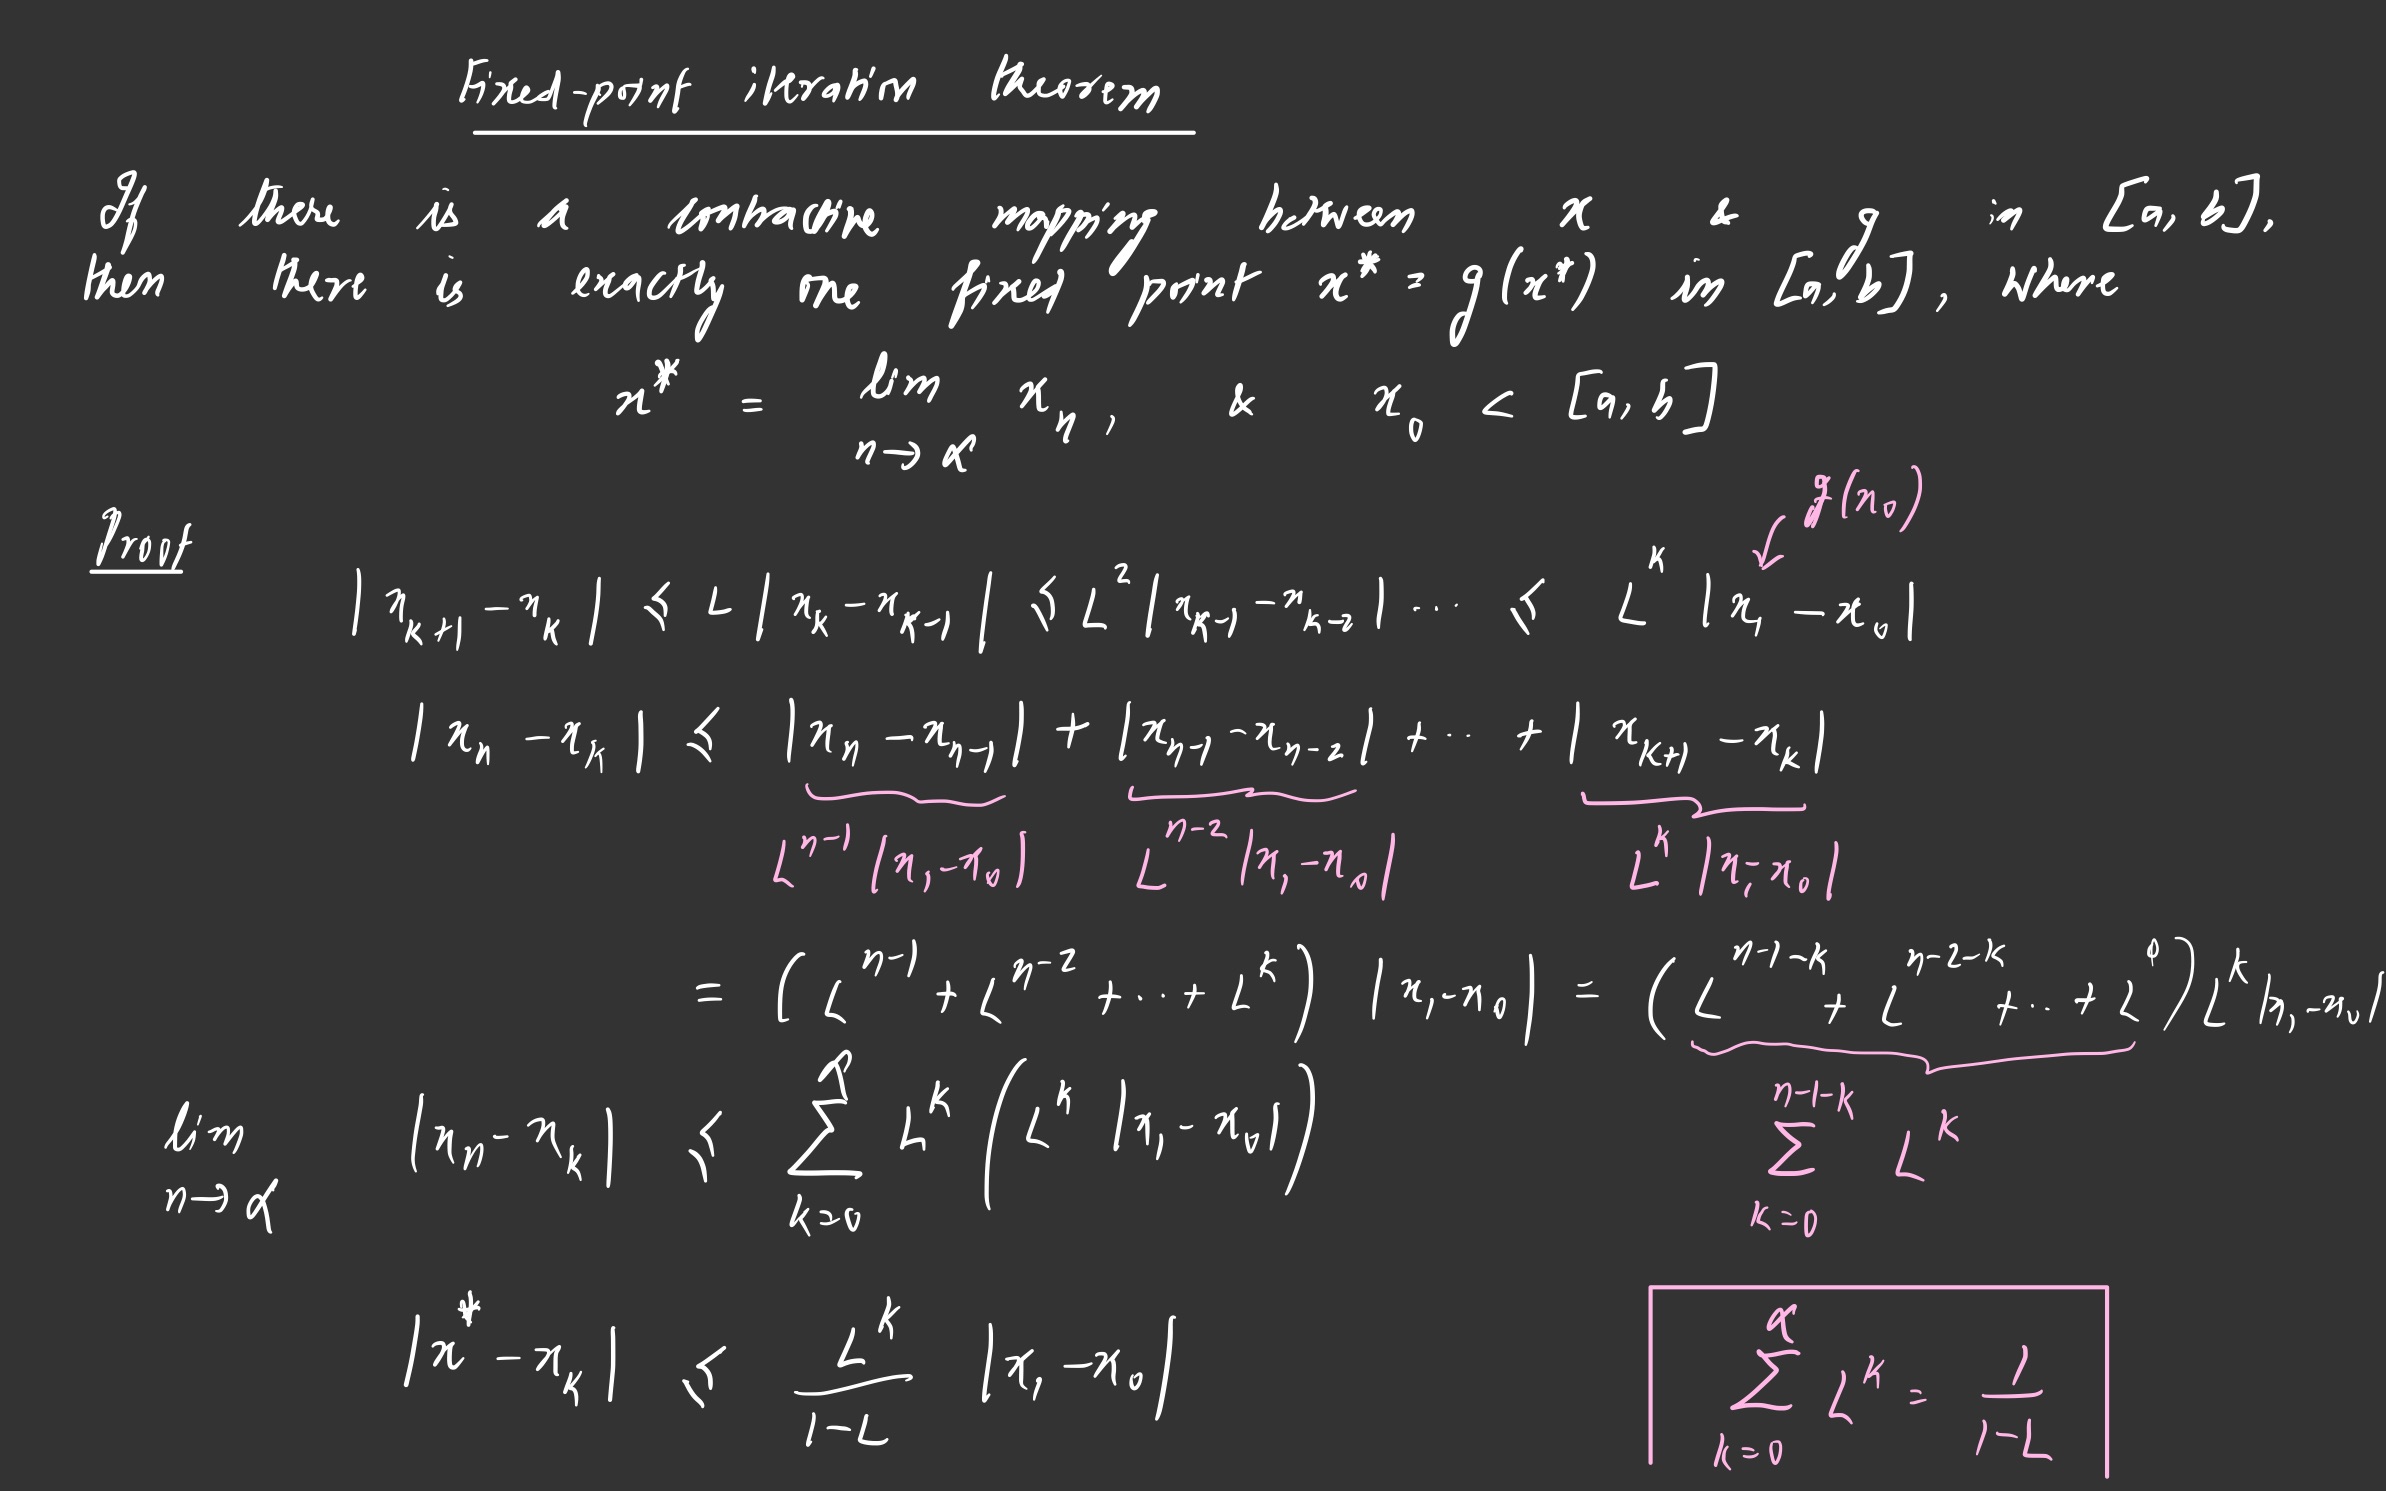 Fixed-point iteration theorem
If there is a contractive mapping between x & g in [a, b],
then there is exactly one fixed point x* = g(x*) in [a, b], where
x* = lim n→∞ x_n, & x_0 < [a, b]
g(x_0)
Proof
|x_{k+1} - x_k| ≤ L |x_k - x_{k-1}| ≤ L^2 |x_{k-1} - x_{k-2}| ... ≤ L^k |x_1 - x_0|
|x_n - x_k| ≤ |x_n - x_{n-1}| + |x_{n-1} - x_{n-2}| + .. + |x_{k+1} - x_k|
L^{n-1} |x_1 - x_0| L^{n-2} |x_1 - x_0| L^k |x_1 - x_0|
= (L^{n-1} + L^{n-2} + .. + L^k) |x_1 - x_0| = (L^{n-1-k} + L^{n-2-k} + .. + L^0) L^k |x_1 - x_0|
lim n→∞ |x_n - x_k| ≤ ∑_{k=0}^{∞} L^k (L^k |x_1 - x_0|)
∑_{k=0}^{n-1-k} L^k
|x* - x_k| ≤ L^k / (1-L) |x_1 - x_0|
∑_{k=0}^{∞} L^k = 1 / (1-L)